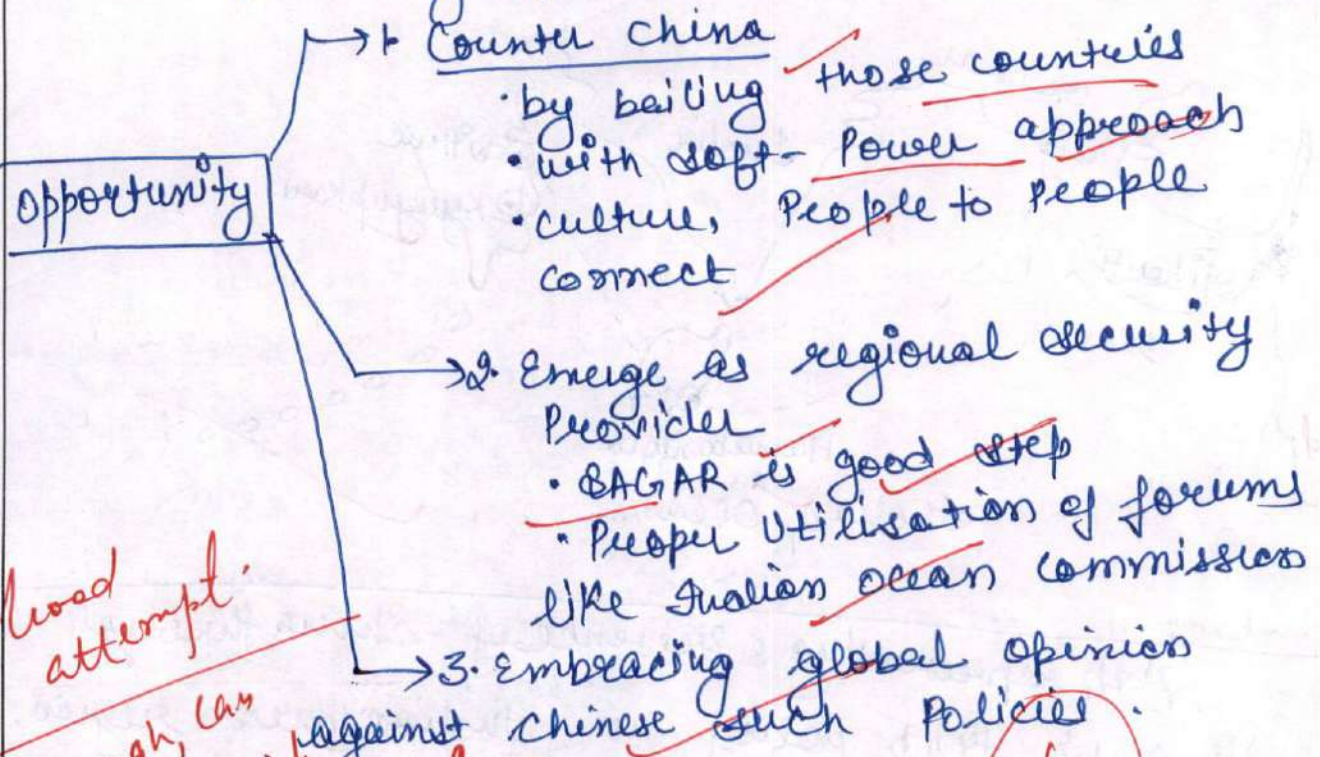 1. Counter China
• by bailing those countries
• with soft- Power approach
• culture, People to People
connect
opportunity
2. Emerge as regional security
Provider
• SAGAR is good step
• Proper Utilisation of forums
like Indian ocean commission
3. Embracing global opinion
against chinese such Policies.
Good
attempt.
can